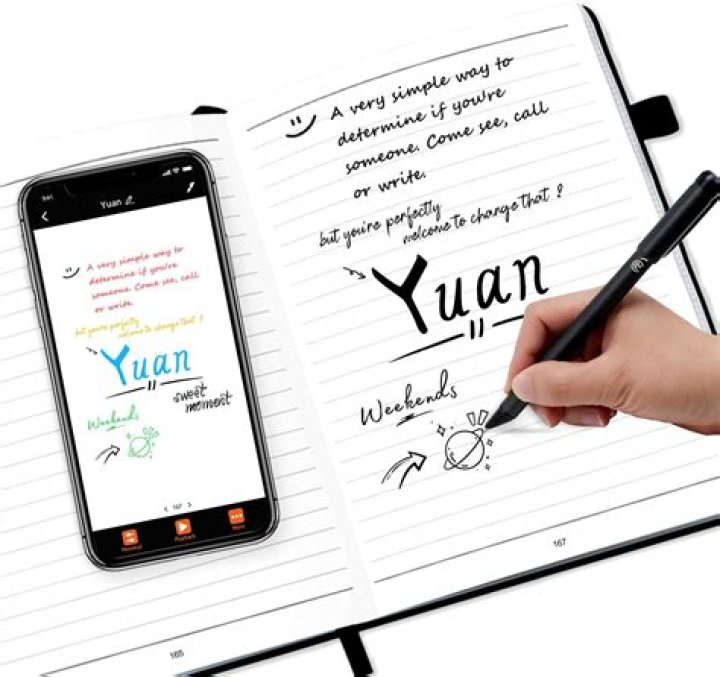 A very simple way to
determine if you're
someone. Come see, call
or write.
but you're perfectly
welcome to change that ?
Yuan
Weekends
167
9:41
Yuan
A very simple way to
determine if you're
someone. Come see, call
or write.
but you're perfectly
welcome to change that ?
Yuan
sweet
moment
Weekends
< 167 >
Playback
More
165